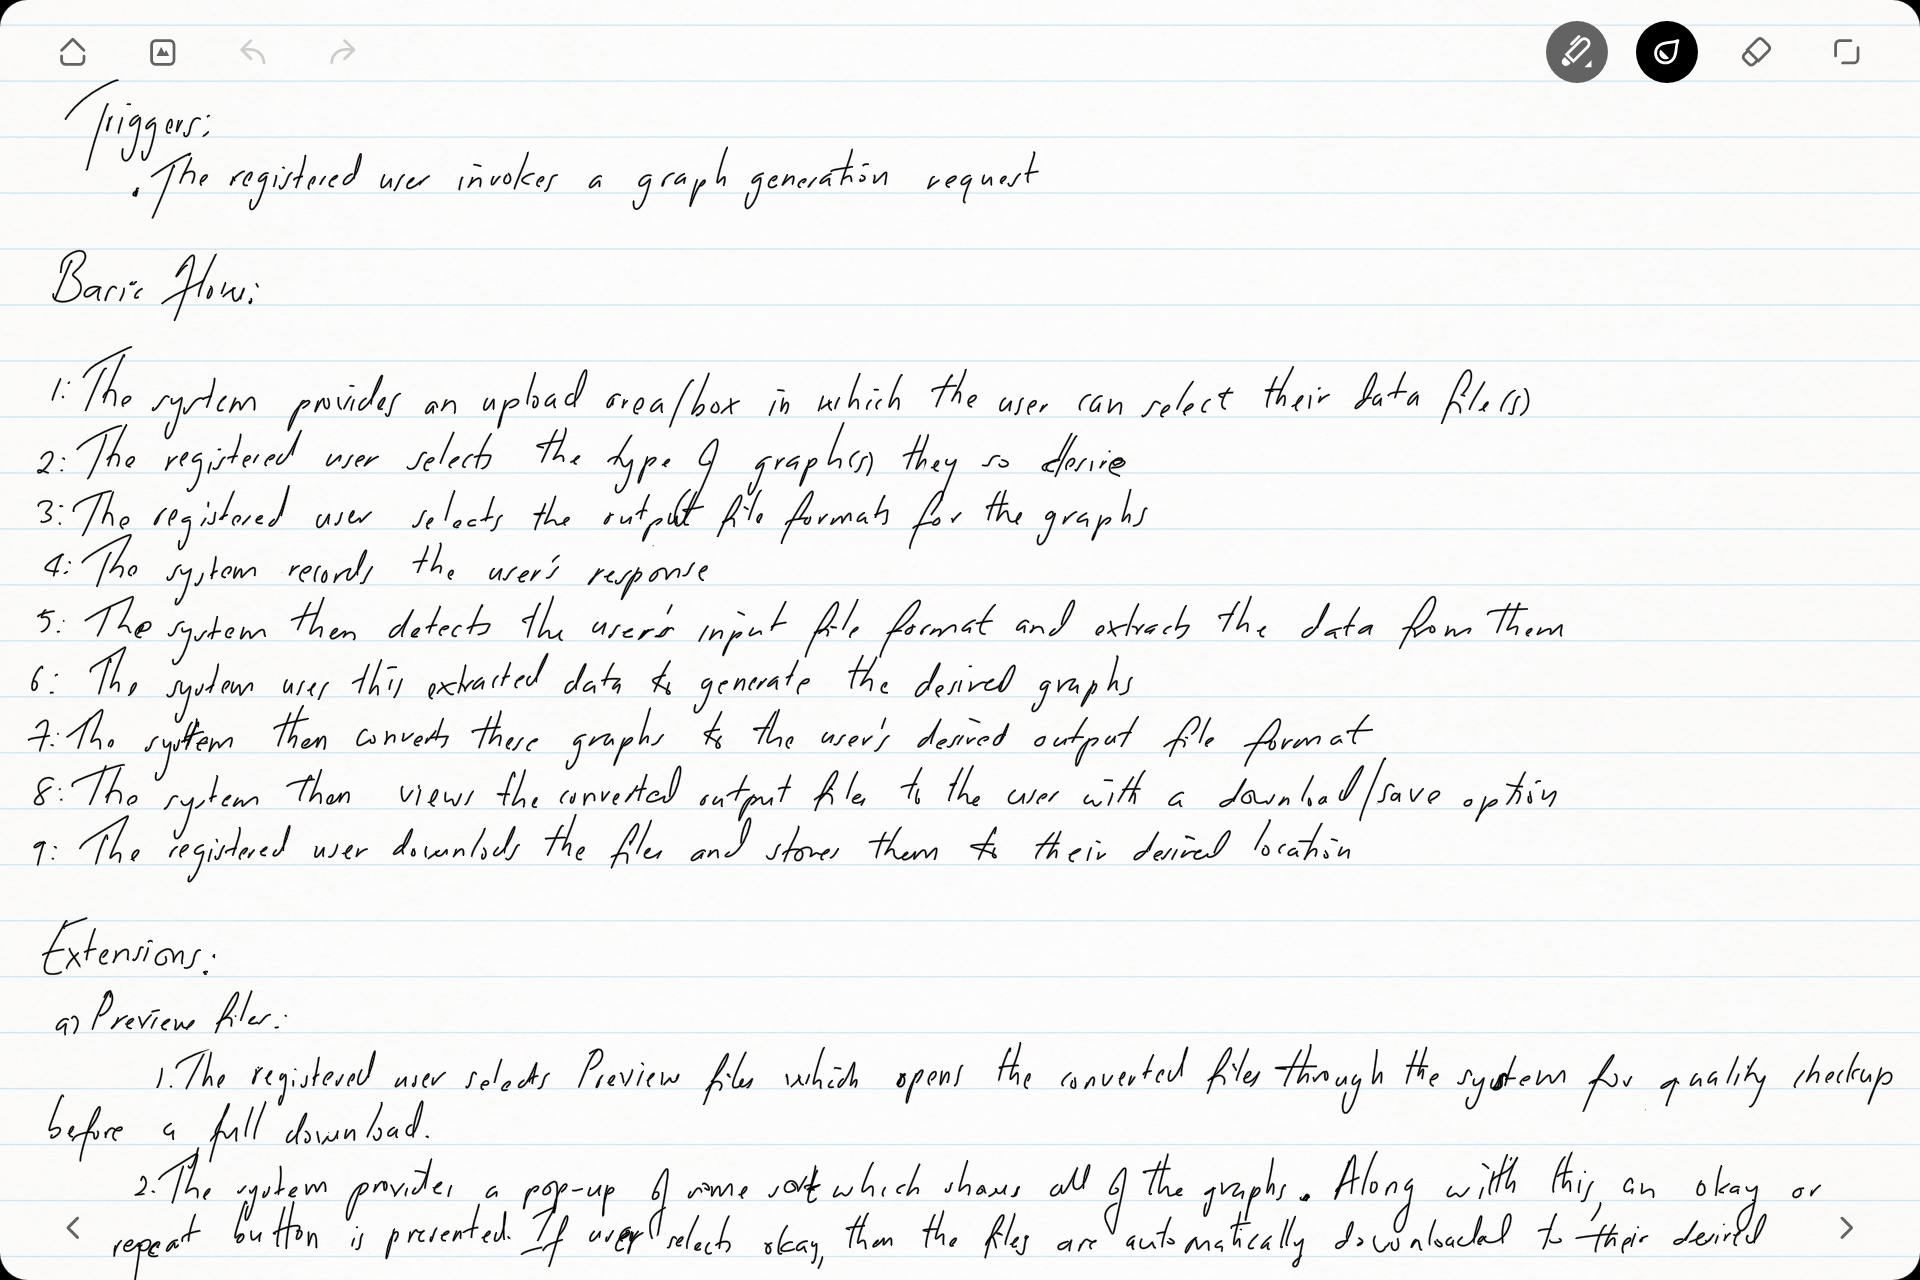 Triggers:
. The registered user invokes a graph generation request
Basic flow:
1: The system provides an upload area/box in which the user can select their data file(s)
2: The registered user selects the type of graph(s) they so desire
3: The registered user selects the output file formats for the graphs
4: The system records the user's response
5: The system then detects the user's input file format and extracts the data from them
6: The system uses this extracted data to generate the desired graphs
7: The system then converts these graphs to the user's desired output file format
8: The system then views the converted output files to the user with a download/save option
9: The registered user downlods the files and stores them to their desired location
Extensions:
a) Preview files:
1. The registered user selects Preview files which opens the converted files through the system for quality checkup
before a full download.
2. The system provides a pop-up of some sort which shows all of the graphs. Along with this, an okay or
repeat button is presented. If user selects okay, then the files are automatically downloaded to their desired